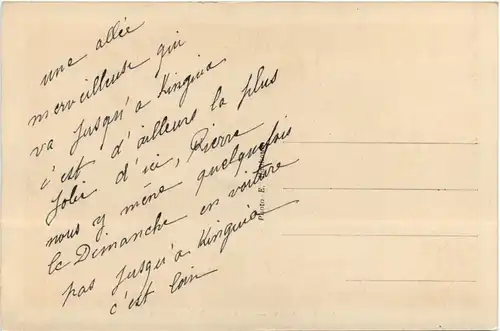 une allée
merveilleuse qui
va jusqu'a Kinguia
c'est d'ailleurs la plus
jolie d'ici, Pierre
nous y mène quelquefois
le Dimanche en voiture
pas jusqu'a Kinguia
c'est loin
Photo E.